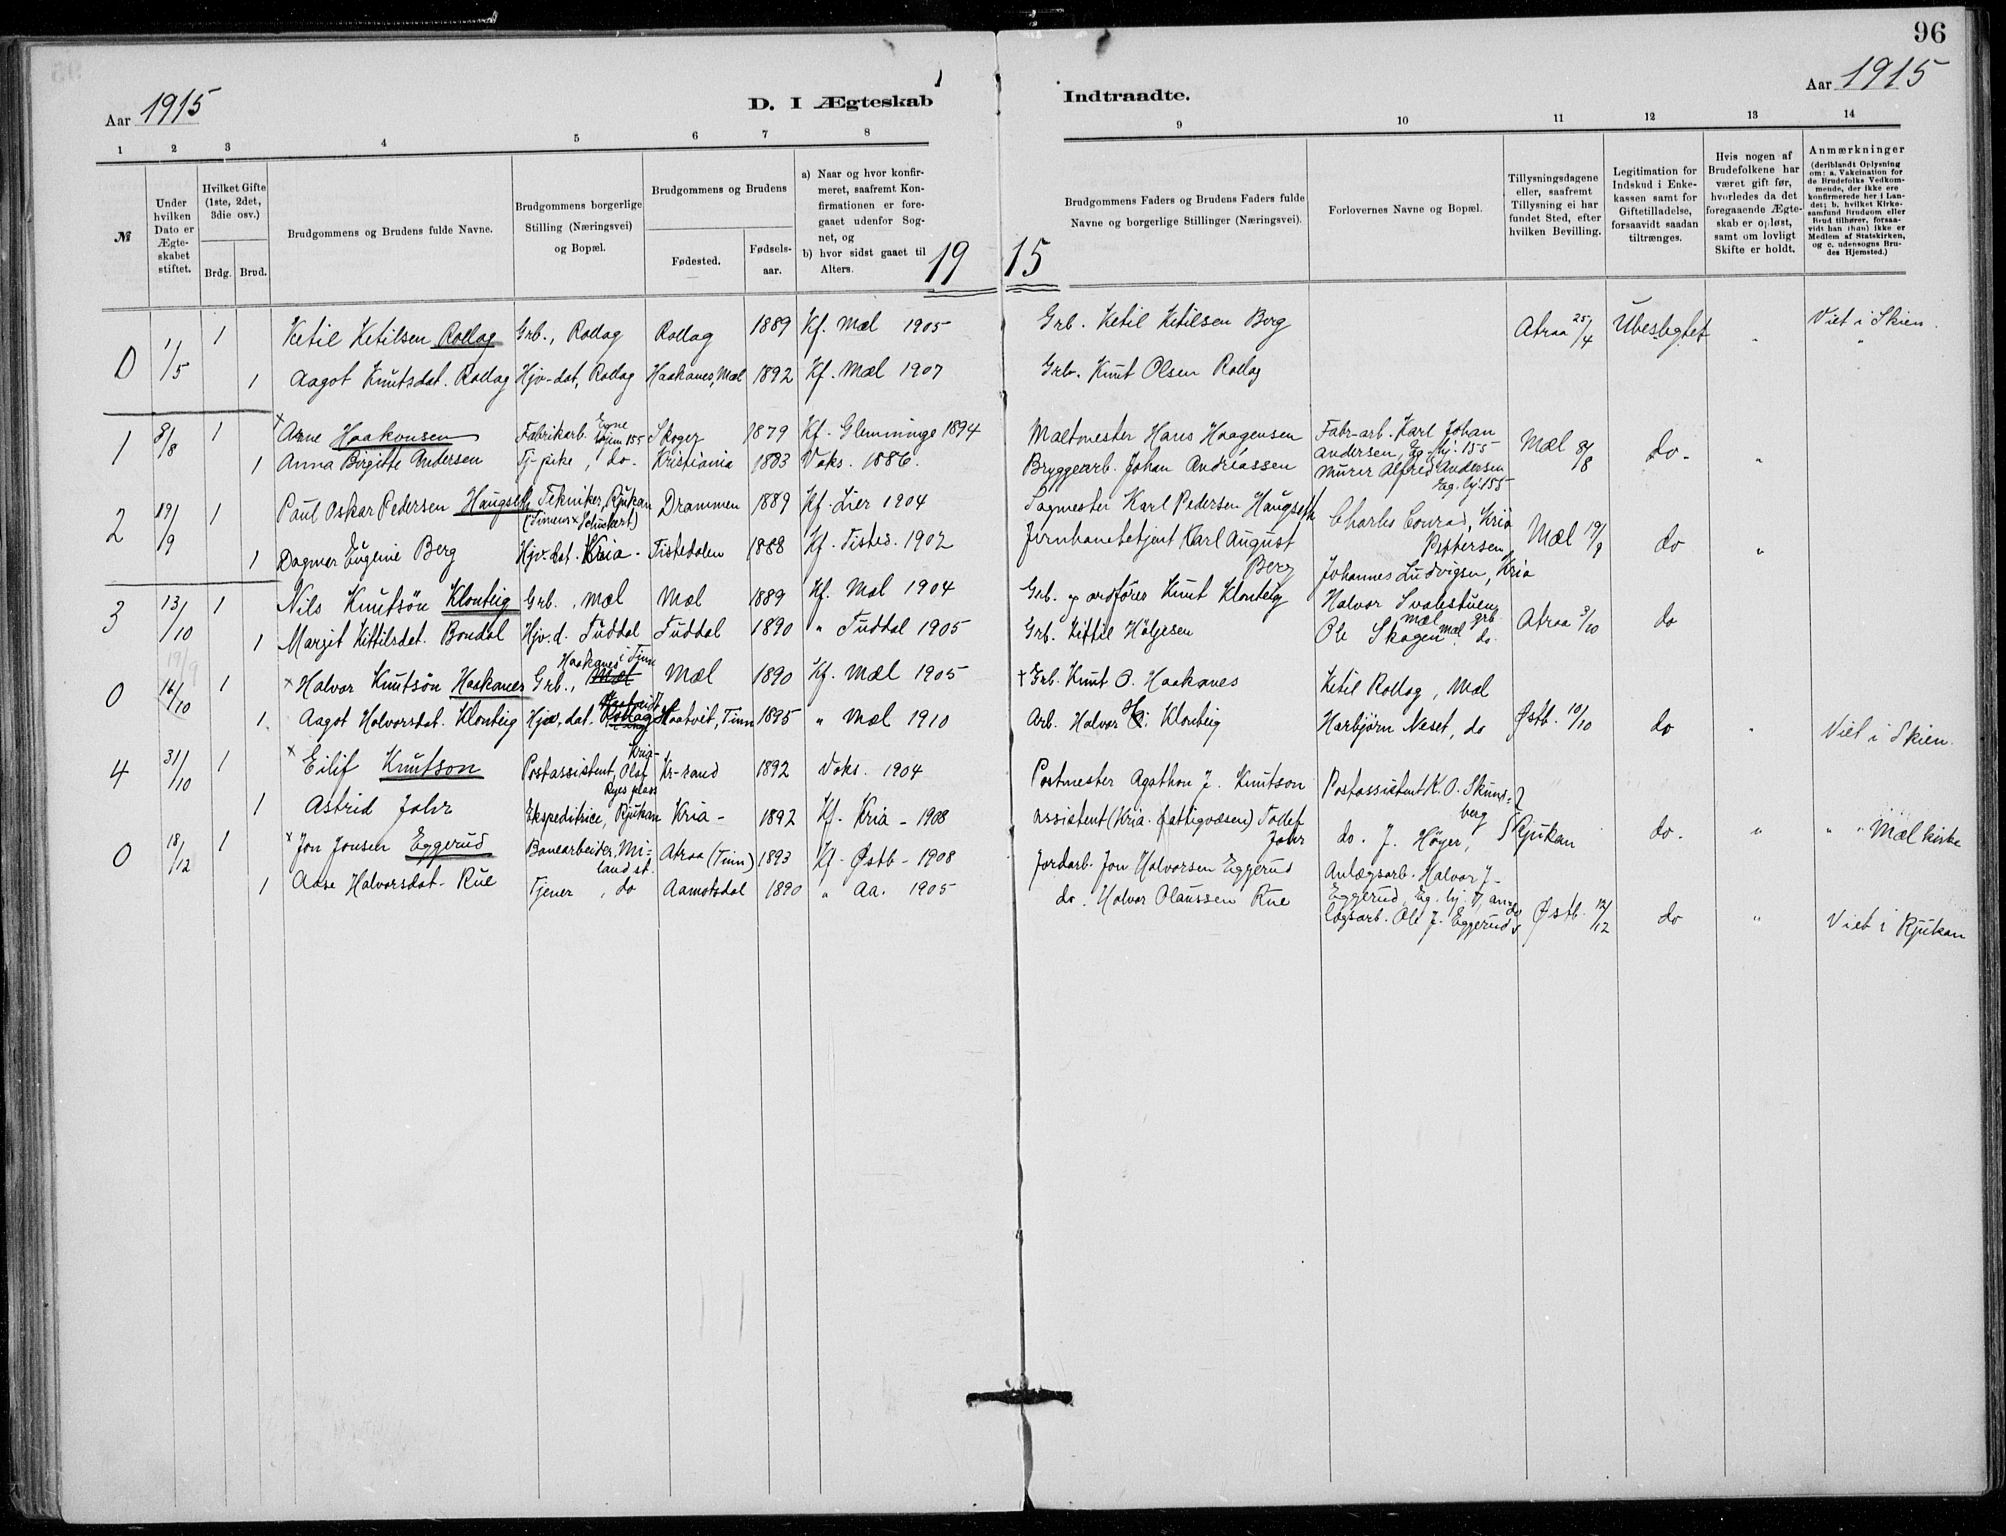 96
Aar 1915
D. I Ægteskab
Indtraadte.
Aar 1915
1 2 3 4 5 6 7 8
9 10 11 12 13 14
№
Under hvilken Dato er Ægteskabet stiftet.
Hvilket Gifte (1ste, 2det, 3die osv.)
Brdg. Brud.
Brudgommens og Brudens fulde Navne.
Brudgommens borgerlige Stilling (Næringsvei) og Bopæl.
Brudgommens og Brudens
Fødested.
Fødsels-aar.
a) Naar og hvor konfirmeret, saafremt Konfirmationen er foregaaet udenfor Sognet, og
b) hvor sidst gaaet til Alters.
Brudgommens Faders og Brudens Faders fulde Navne og borgerlige Stillinger (Næringsvei).
Forlovernes Navne og Bopæl.
Tillysningsdagene eller, saafremt Tillysning ei har fundet Sted, efter hvilken Bevilling.
Legitimation for Indskud i Enkekassen samt for Giftetilladelse, forsaavidt saadan tiltrænges.
Hvis nogen af Brudefolkene har været gift før, hvorledes da det foregaaende Ægteskab er opløst, samt om lovligt Skifte er holdt.
Anmærkninger
(deriblandt Oplysning om: a. Vakcination for de Brudefolks Vedkommende, der ikke ere konfirmerede her i Landet; b. hvilket Kirkesamfund Brudgom eller Brud tilhører, forsaavidt han (hun) ikke er Medlem af Statskirken, og c. udensogns Brudes Hjemsted.)
19 15
0 1/5 1 Ketil Ketilsen Rollag Grb., Rollag Rollag 1889 Kf. Mæl 1905 Grb. Ketil Ketilsen Berg Atraa 25/4 Ubeslegtet " Viet i Skien.
1 Aagot Knutsdat. Rollag Hjv-dat, Rollag Haakanes, Mæl 1892 Kf. Mæl 1907 Grb. Knut Olsen Rollag "
1 8/8 1 + Arne Haakonsen Fabrikarb. Egne hjem 155 Skoger 1879 Kf. Glemminge 1894 Maltmester Hans Haagensen Fabr-arb. Karl Johan Andersen, Eg. hj. 155 Mæl 8/8 do. "
1 Anna Birgitte Andersen Tj-pike, do. Kristiania 1883 Voks. 1886. Bryggearb. Johan Andreassen Murer Alfred Andersen Eg. hj. 155
2 19/9 1 Paul Oskar Pedersen Haugseth Tekniker, Rjukan (Simens × Schukert) Drammen 1889 Kf. Lier 1904 Sagmester Karl Pedersen Haugseth Charles Conrad, Kria Pettersen Mæl 19/9 do "
1 Dagmar Eugenie Berg Hjv-dat. Kria - Tistedalen 1888 Kf. Tisted. 1902 Jernbanebetjent Karl August Berg Johannes Ludvigsen, Kria
3 13/10 1 Nils Knutsön Klonteig Grb., Mæl Mæl 1889 Kf. Mæl 1904 Grb. og ordfører Knut Klonteig Halvor Svalestuen, Mæl grb Atraa 3/10 do
1 Margit Kittilsdat. Bondal Hjv.d. Tuddal Tuddal 1890 " Tuddal 1905 Grb. Kittil Höljesen Ole Skogen Mæl. do.
19/9
0 16/10 1 × Halvor Knutsön Haakanes Grb., Mæl Haakanes i Tinn Mæl 1890 Kf. Mæl 1905 + Grb. Knut O. Haakanes Ketil Rollag, Mæl
1. Aagot Halvorsdat. Klonteig Hjv.-dat. Rollag Haatveit, Tinn 1895 " Mæl 1910 Arb. Halvor H. Klonteig Harbjørn Neset, do Østb. 10/10 do " Viet i Skien.
4 31/10 1 × Eilif Knutson Postassistent, Olaf Ryes plass Kria- Kr-sand 1892 Voks. 1904 Postmester Agathon J. Knutson Postassistent K. O. Skundberg
1 Astrid Johr Ekspeditrice, Rjukan Kria - 1892 Kf. Kria - 1908 Assistent (Kria. fattigvæsen) Tollef Johr do. J. Høyer, Rjukan do. " " " Mæl kirke
0 18/12 1 × Jon Jonsen Eggerud Banearbeider, Miland st. Atraa (Tinn) 1893 Kf. Østb - 1908 Jordarb. Jon Halvorsen Eggerud Anlægsarb. Halvor J. Eggerud, Eg. hj.
1 Aase Halvorsdat. Rue Tjener, do Aamotsdal 1890 " Aa. 1905 do. Halvor Olaussen Rue anlægsarb. Ole J. Eggerud do Østb. 12/12 do " Viet i Rjukan